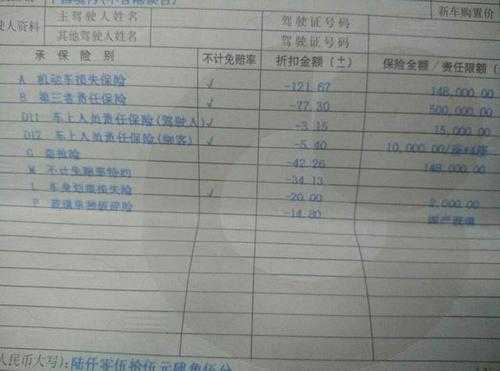 新车购置价
驶人资料 主驾驶人姓名 驾驶证号码
其他驾驶人姓名 驾驶证号码
承保险别 不计免赔率 折扣金额(±) 保险金额/责任限额(
A 机动车损失保险 √ -121.67 148,000.00
B 第三者责任保险 √ -77.30 500,000.00
D11 车上人员责任保险(驾驶人) √ -3.15 15,000.00
D12 车上人员责任保险(乘客) √ -5.40 10,000.00/座*4座
G 盗抢险 -42.26 148,000.00
M 不计免赔率特约 -34.13
L 车身划痕损失险 √ -20.00 2,000.00
F 玻璃单独破碎险 -14.80 国产玻璃
人民币大写):陆仟零伍拾伍元